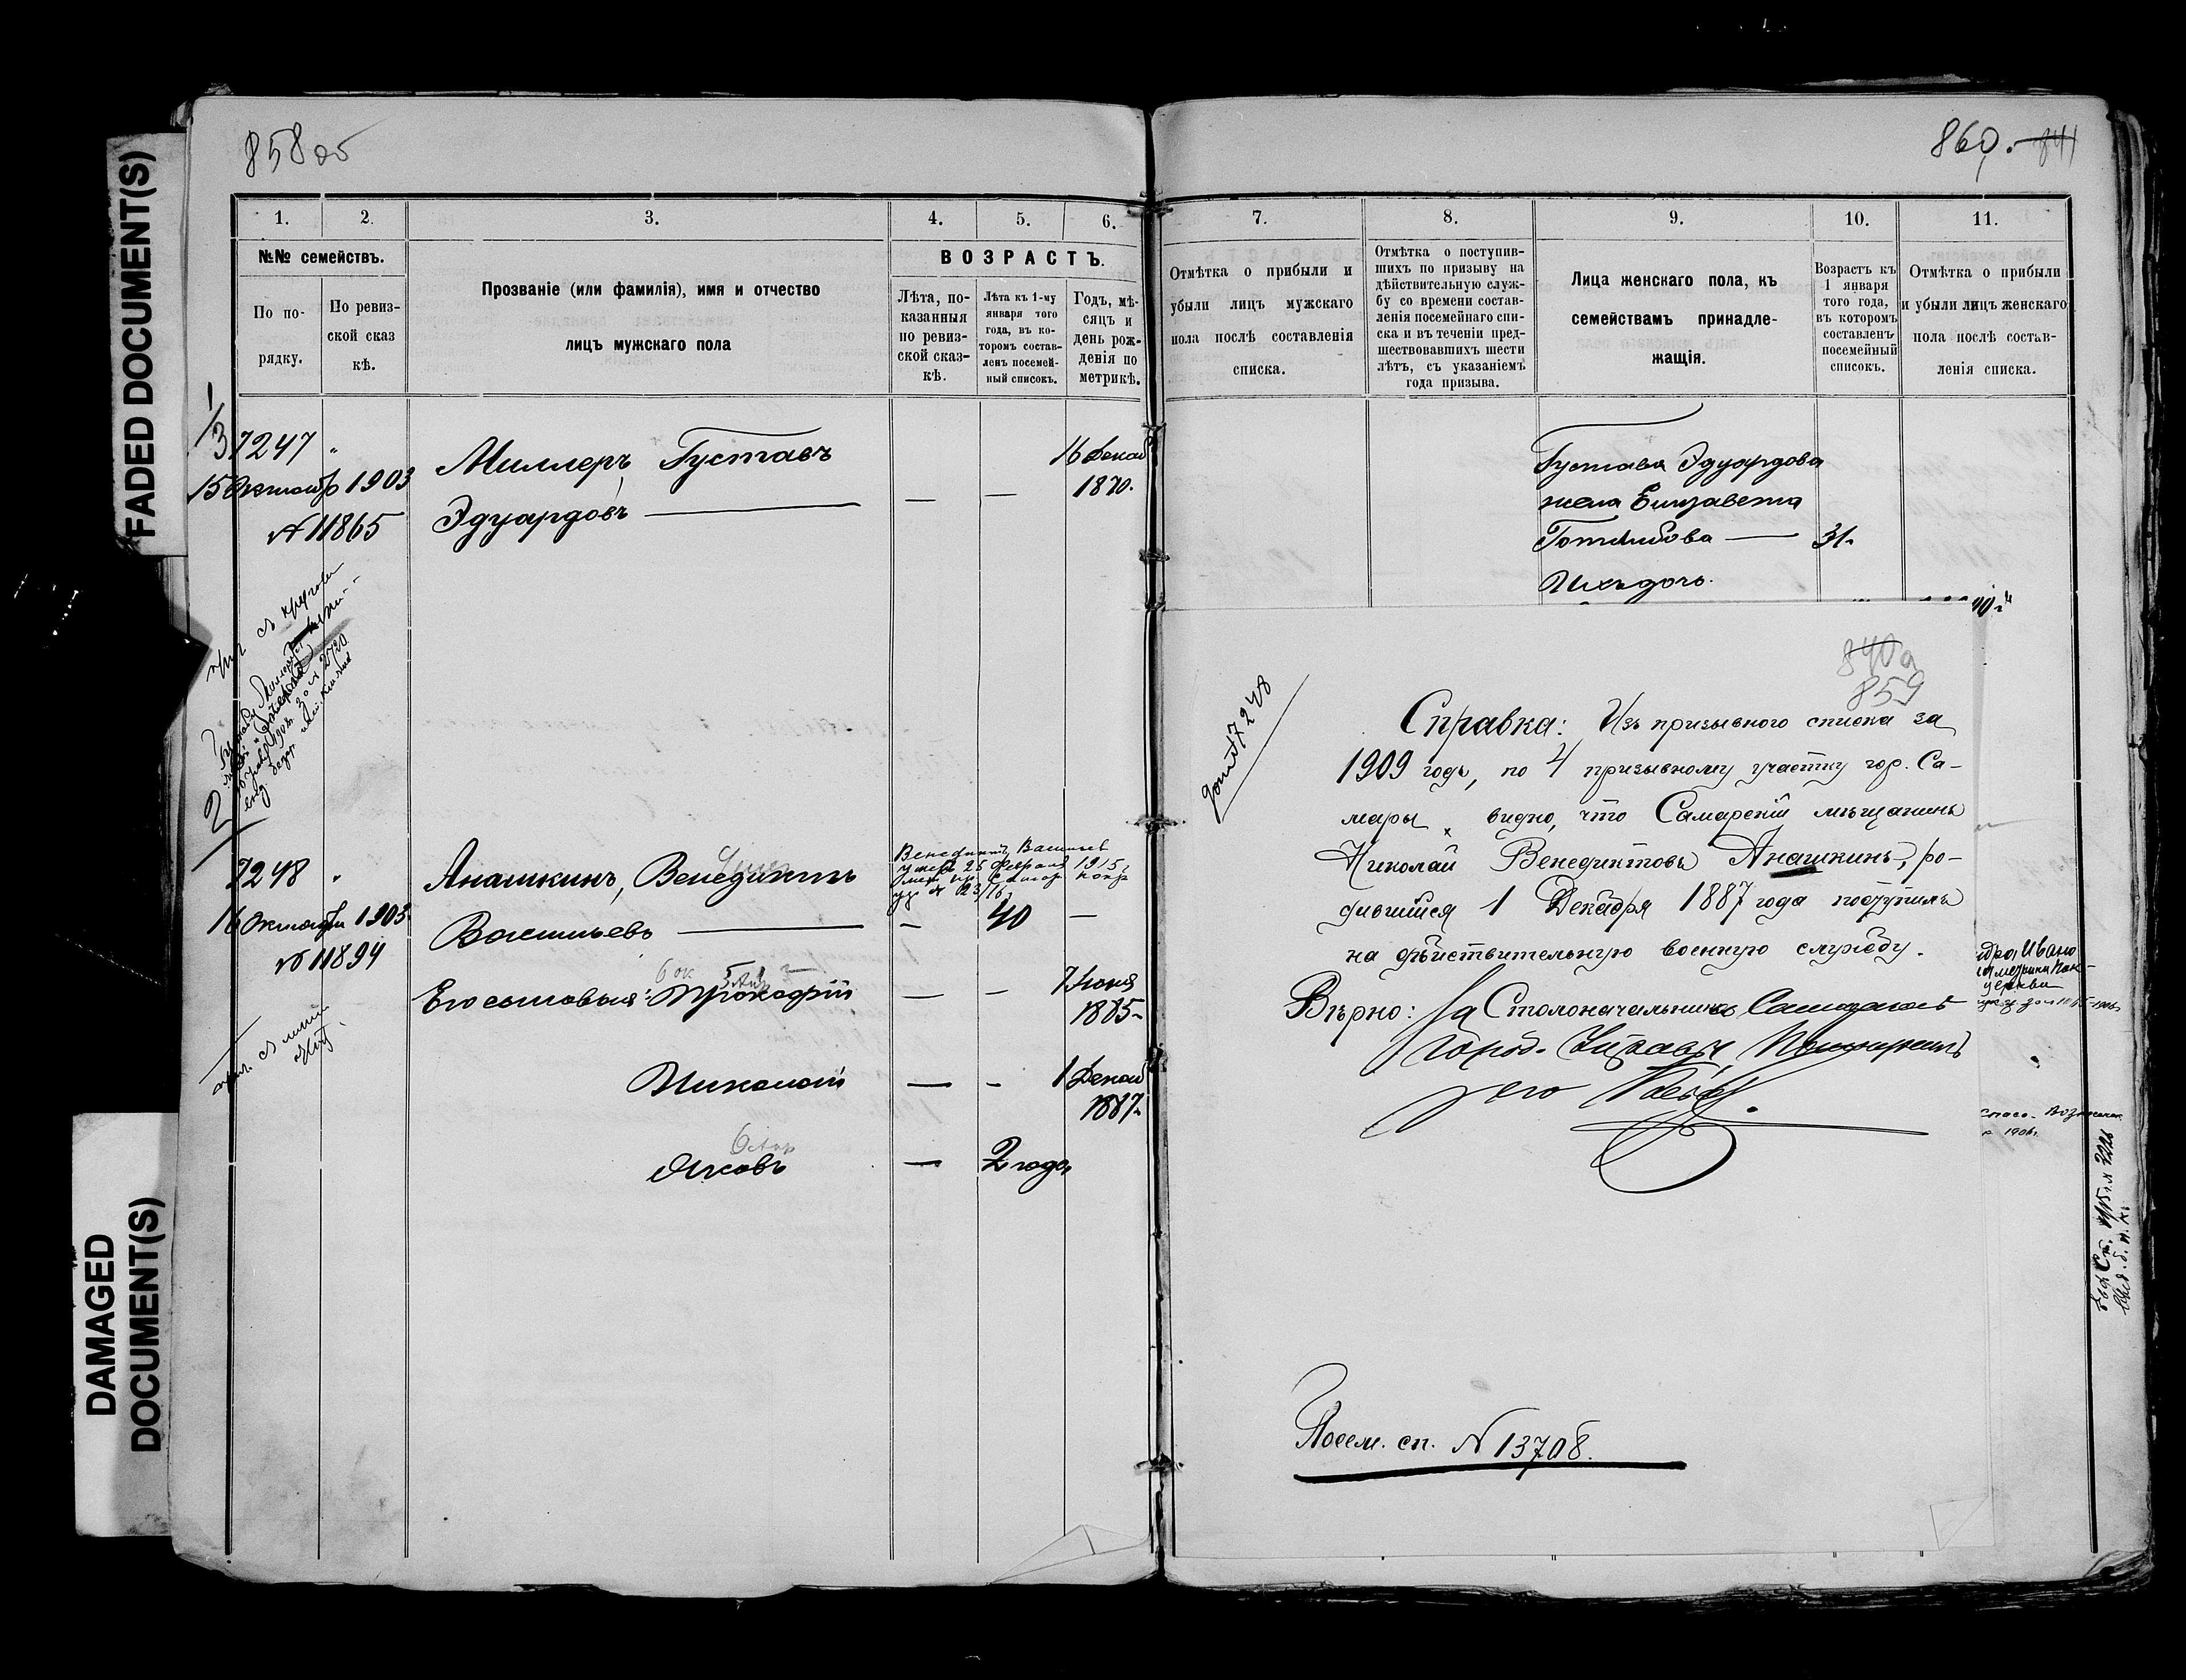 FADED DOCUMENT(S)
DAMAGED
DOCUMENT(S)
858об
1.
2.
3.
4.
5.
6.
№№ семействъ.
По по-
рядку.
По ревиз-
ской сказ
кѣ.
Прозваніе (или фамилія), имя и отчество
лицъ мужскаго пола
ВОЗРАСТЪ.
Лѣта, по-
казанныя
по ревиз-
ской сказ-
кѣ.
Лѣта къ 1-му
января того
года, въ ко-
торомъ состав-
ленъ посемей-
ный списокъ.
Годъ, мѣ-
сяцъ и
день рож-
денія по
метрикѣ.
7247 "
15 Октяб 1903
№ 11865
Миллеръ, Густавъ
Эдуардовъ —
— —
16 Декаб
1870.
7248 "
16 Октяб 1903
№ 11894
Анашкинъ, Венедиктъ
Васильевъ — — 40 —
Венедиктъ Васильев
умеръ 25 Февраля 1915
Его сыновья: Прокофій — — 7 Іюня
1885
Николай — — 1 Декаб
1887
Яковъ — 2 года
860. 841
7.
8.
9.
10.
11.
Отмѣтка о прибыли и
убыли лицъ мужскаго
пола послѣ составленія
списка.
Отмѣтка о поступив-
шихъ по призыву на
дѣйствительную служ-
бу со времени состав-
ленія посемейнаго спи-
ска и въ теченіи пред-
шествовавшихъ шести
лѣтъ, съ указаніемъ
года призыва.
Лица женскаго пола, къ
семействамъ принадле-
жащія.
Возрастъ къ
1 января
того года,
въ которомъ
составленъ
посемейный
списокъ.
Отмѣтка о прибыли
и убыли лицъ женскаго
пола послѣ состав-
ленія списка.
Густава Эдуардова
жена Елизавета
Готлибова — 31.
Ихъ дочь.
840а
859
7248
Справка: Изъ призывного списка за
1909 годъ, по 4 призывному участку гор. Са-
мары, видно, что Самарскій мѣщанинъ
Николай Венедиктовъ Анашкинъ, ро-
дившійся 1 Декабря 1887 года поступилъ
на дѣйствительную военную службу.
Вѣрно: За Столоначальника
Город. Управы
Посем. сп. № 13708.